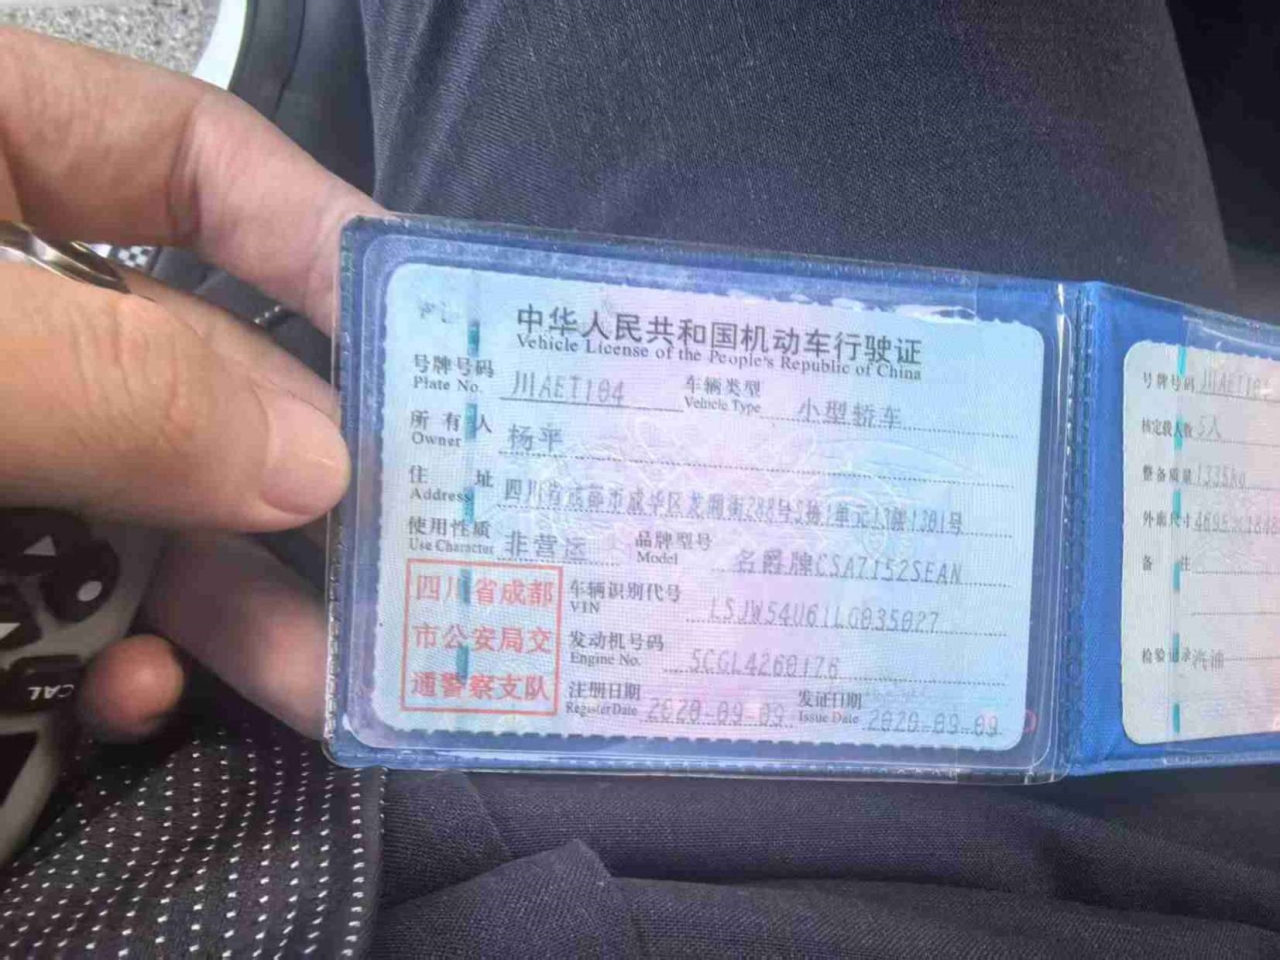 中华人民共和国机动车行驶证
Vehicle License of the People's Republic of China
号牌号码 川AET184 车辆类型 小型轿车
Plate No. Vehicle Type
所有人 杨平
Owner
住址 四川省成都市成华区
Address
使用性质 非营运 品牌型号 名爵牌CSA7152SEAN
Use Character Model
四川省成都
市公安局交
通警察支队
车辆识别代号 LSJW54U61LG035027
VIN
发动机号码 5CGL4260176
Engine No.
注册日期 2020-09-09 发证日期 2020-09-09
Register Date Issue Date
号牌号码
核定载人数 5人
整备质量 1335kg
外廓尺寸
备注
检验记录 汽油
CAL